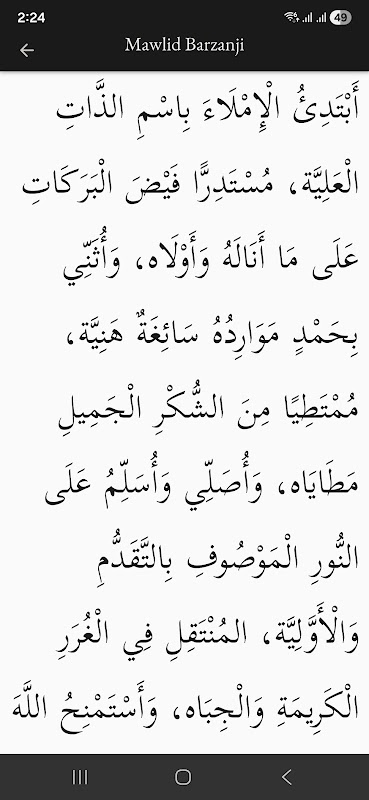 2:24
49
Mawlid Barzanji
أَبْتَدِئُ الْإِمْلَاءَ بِاسْمِ الذَّاتِ
الْعَلِيَّة، مُسْتَدِرًّا فَيْضَ الْبَرَكَاتِ
عَلَى مَا أَنَالَهُ وَأَوْلَاه، وَأُثَنِّي
بِحَمْدٍ مَوَارِدُهُ سَائِغَةٌ هَنِيَّة،
مُمْتَطِيًا مِنَ الشُّكْرِ الْجَمِيلِ
مَطَايَاه، وَأُصَلِّي وَأُسَلِّمُ عَلَى
النُّورِ الْمَوْصُوفِ بِالتَّقَدُّمِ
وَالْأَوَّلِيَّة، المُنْتَقِلِ فِي الْغُرَرِ
الْكَرِيمَةِ وَالْجِبَاه، وَأَسْتَمْنِحُ اللَّهَ